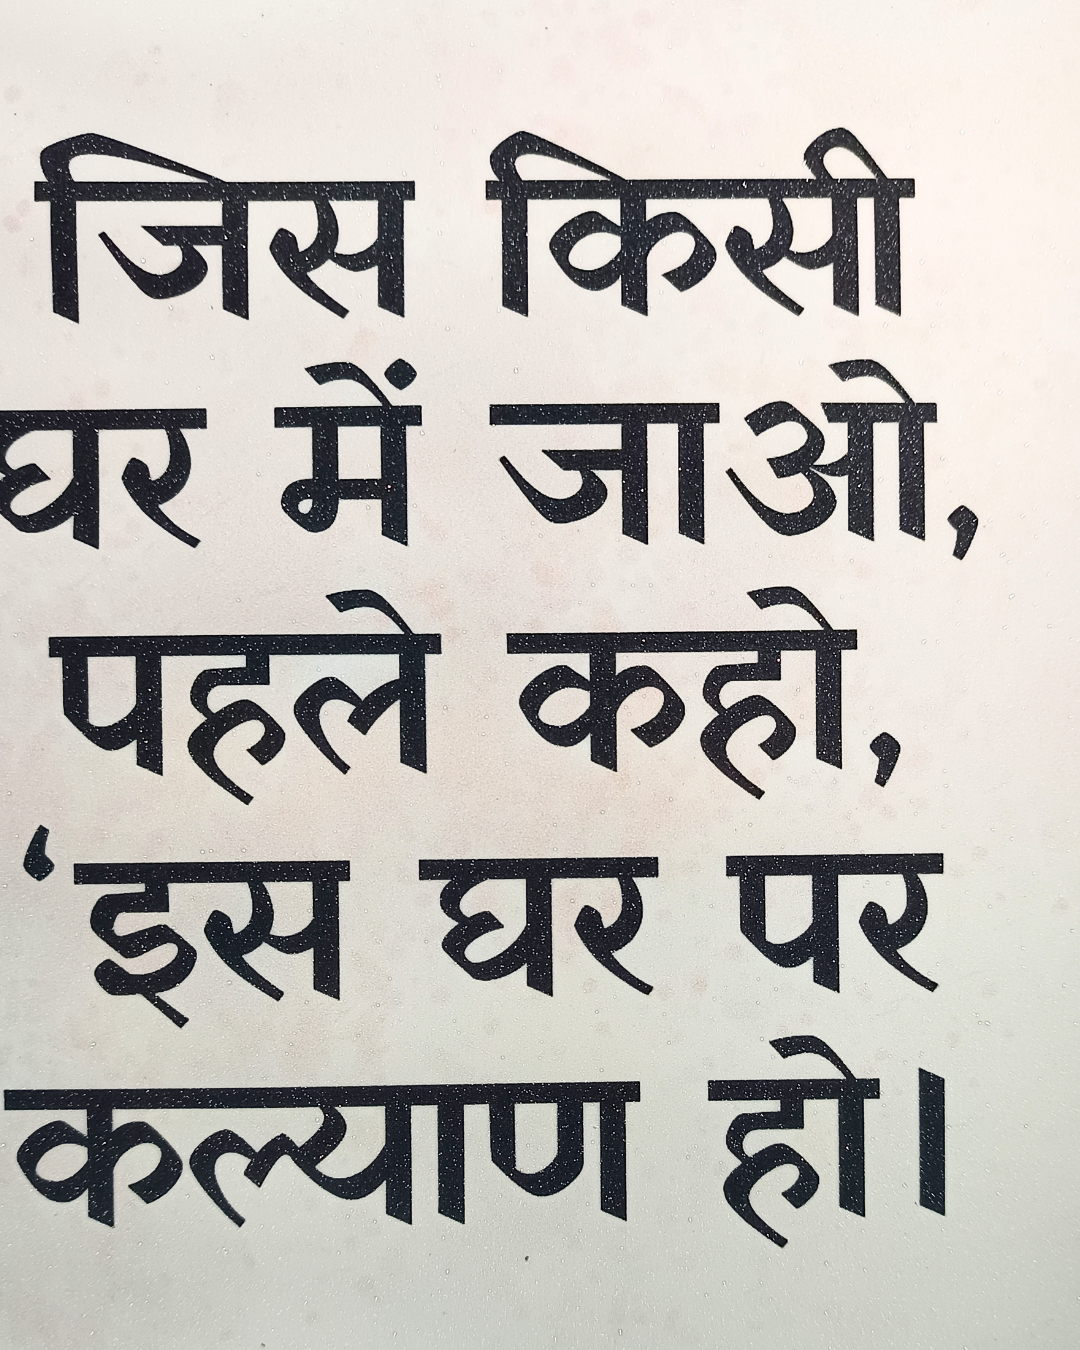 जिस किसी
घर में जाओ,
पहले कहो,
‘इस घर पर
कल्याण हो।